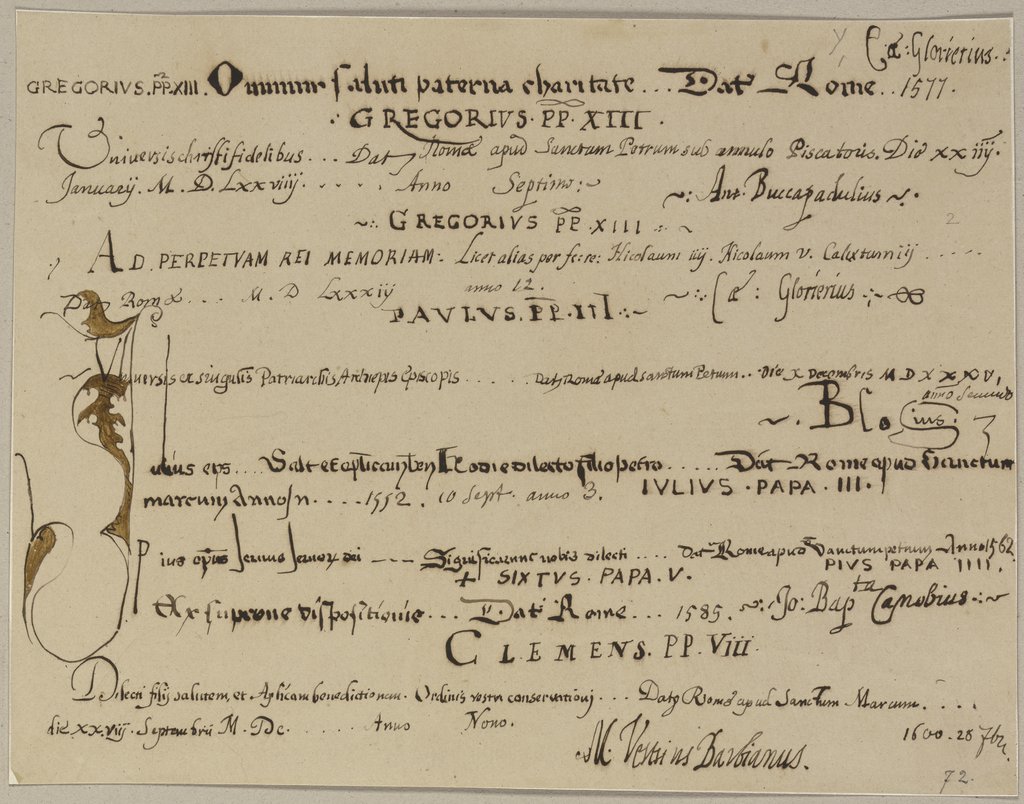 Cæ: Glorierius.
GREGORIVS. PP. XIII. Omnium saluti paterna charitate... Dat Rome.. 1577.
.GREGORIVS. PP. XIII.
Universis christifidelibus... Dat Romæ apud Sanctum Petrum sub annulo Piscatoris. Die xxiiij.
Januarij. M. D. Lxxviiij. .... Anno Septimo: Ant. Buccapadulius.
GREGORIVS PP XIII
2
AD. PERPETVAM REI MEMORIAM: Licet alias per fe: re: Nicolaum iiij. Nicolaum v. Calixtum iij ....
Dat Romæ... M. D Lxxxiij anno 12. Cæ: Glorierius
PAVLVS. PP. III.
Universis et singulis Patriarchis Archiepis Episcopis ..... Dat Romæ apud sanctum Petrum.. Die x Decembris M D X X X V,
anno Secundo
Blosius.
Iulius eps... Salt et aplicam ben Hodie dilecto filio petro ..... Dat Rome apud Sanctum
marcum Anno .... 1552. 10 Sept. anno 3. IVLIVS. PAPA. III.
Pius epus servus servor dei --- Significarunt nobis dilecti .... Dat Rome apud Sanctum petrum Anno 1562.
PIVS PAPA IIII.
+ SIXTVS. PAPA. V.
Ex supreme dispositionis... Dat Rome... 1585. Jo: Bapta Canobius
CLEMENS. PP. VIII.
Dilecti filij salutem, et Aplicam benedictionem. Ordinis vestri conservationi... Dat Romæ apud Sanctum Marcum. ....
die xx.viij. Septembris M. Dc. ...... Anno Nono.
1600. 28 7br.
M. Vestrius Barbianus.
72.